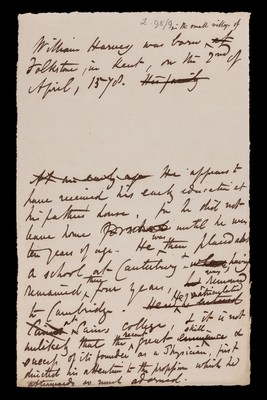 in the small village of
William Harvey was born at
Folkstone, in Kent, on the 2nd of
April, 1578. His family
At an early age He appears to
have received his early education at
his father's house, for he did not
leave home For school until he was
ten years of age. He was then placed at
a school at Canterbury &
remained there four years, removed
to Cambridge. He matriculated
Caius college & it is not
unlikely that the recent great skill
of its founder as a Physician, first
directed his attention to the profession which he
afterwards so much adorned.